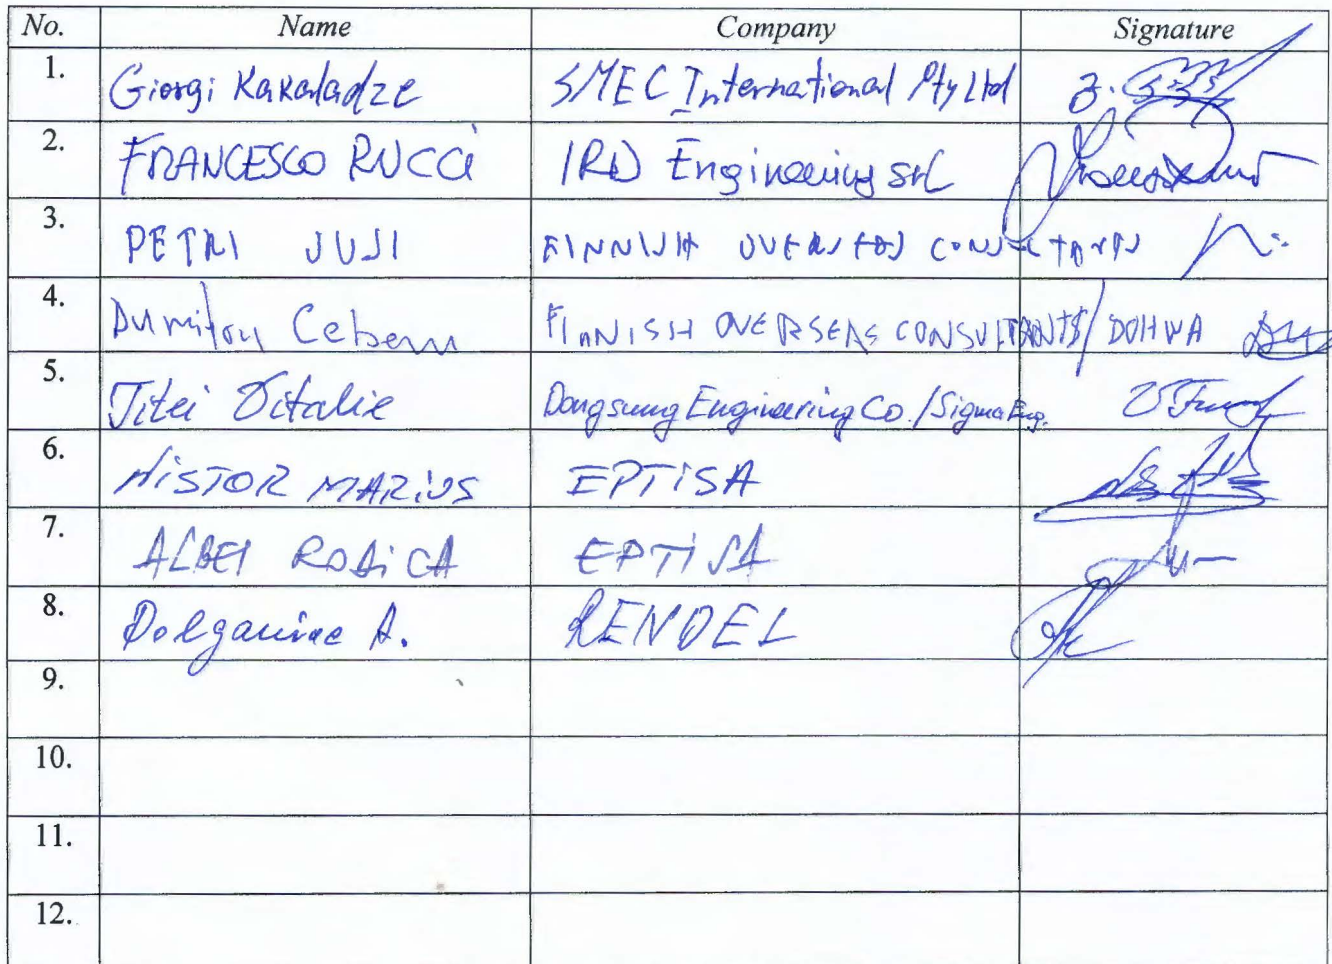 No. Name Company Signature
1. Giorgi Kakaladze SMEC International Pty Ltd
2. FRANCESCO RUCCi IRD Engineering srl
3. PETRI JUSI FINNISH OVERSEAS CONSULTANTS
4. Dumitru Ceban FINNISH OVERSEAS CONSULTANTS/DOHWA
5. Titei Vitalie Dongsung Engineering Co./Sigma Eng.
6. NiSTOR MARiUS EPTiSA
7. ALBEI RODiCA EPTiSA
8. A. RENDEL
9.
10.
11.
12.